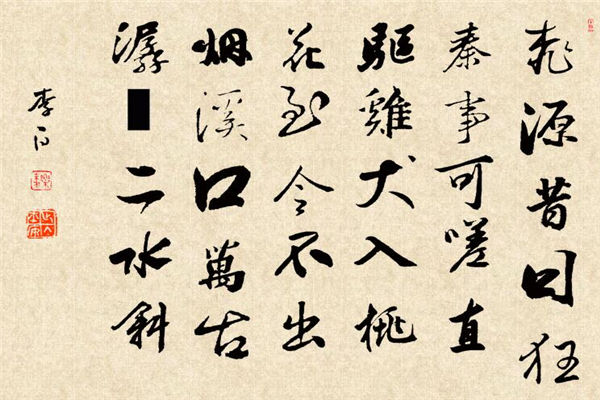 桃源昔日狂
秦事可嗟直
驅雞犬入桃
花至今不出
烟溪口萬古
潺二水斜
李白